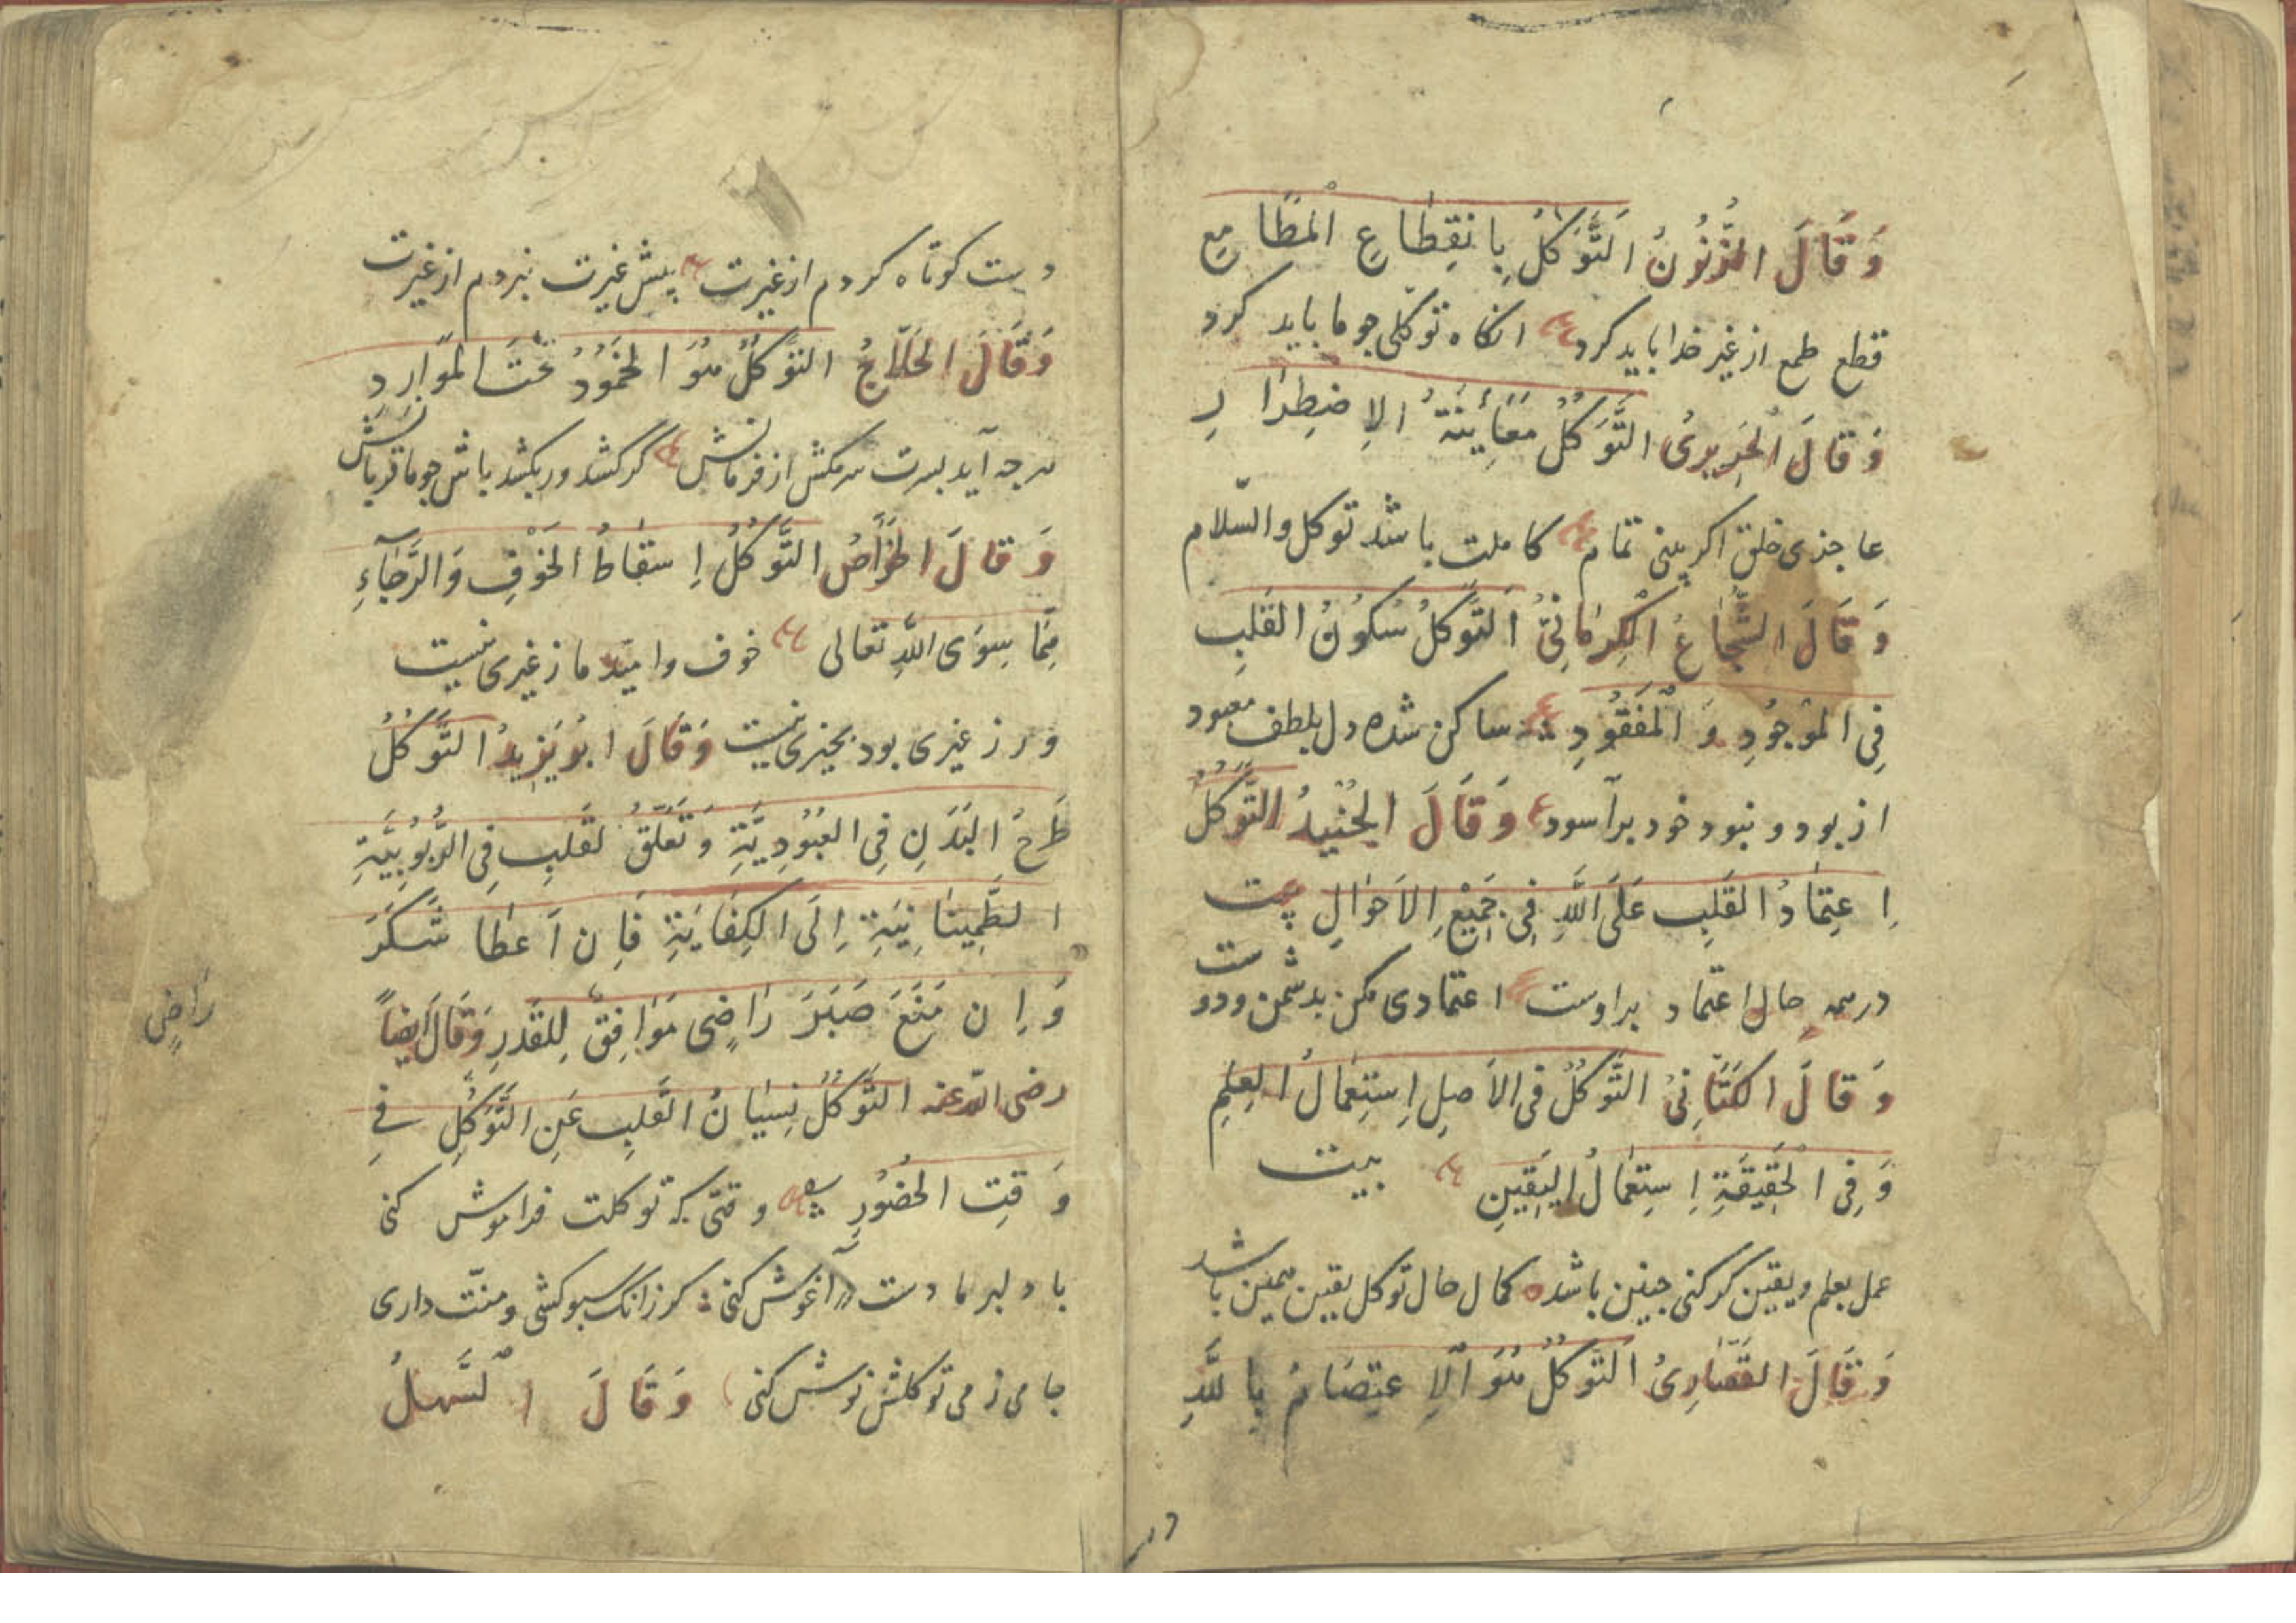 وَقَالَ ذُوالنُّونُ اَلتَّوَكُّلُ بِانْقِطَاعِ الْمَطَامِعِ
قطع طمع از غیر خدا باید کرد انکاه توکلی جو ما باید کرد
وَقَالَ الْجَرِيرِىُّ التَّوَكُّلُ مَعَايِنَةُ الِاضْطِرَارِ
عاجزی خلق اکر بینی تمام کاملت باشد توکل والسّلام
وَقَالَ الشُّجَاعُ الْكِرمَانِىُّ اَلتَّوَكُّلُ سُكُونُ القَلبِ
فِى الموْجُودِ وَ الْمَفقُودِ ساکن شده دل بلطف معبود
از بود و نبود خود برآسود وَقَالَ الجُنَيدُ اَلتَّوَكُّلُ
اِعتِمَادُ القَلبِ عَلَى اللَّهِ فِى جَمِيْعِ الاَحْوَالِ بیت
در همه حال اعتماد بر اوست اعتمادی مکن بدشمن ودوست
وَقَالَ الكَتَّانِىُّ التَّوَكُّلُ فى الاَصلِ اِستِعمَالُ العِلمِ
وَفِى الْحَقِيقَةِ اِستِعمَالُ اليَقِينِ بیت
عمل بعلم ویقین کر کنی جنین باشد کمال حال توکل یقین همین باشد
وَقَالَ القَصَّارِىُّ اَلتَّوَكُّلُ هُوَ الاِعتِصَامُ بِاللَّهِ
دست کوتاه کردم از غیرت پیش غیرت نبردم از غیرت
وَقَالَ الحَلّاجُ التَّوَكُّلُ هُوَ الخُمُودُ تَحْتَ المَوَارِدِ
هرجه آید بسرت سرمکش از فرمانش کر کشد ور بکشد باش جو ما قربانش
وَقَالَ الخَوَّاصُ التَّوَكُّلُ اِسقَاطُ الخَوْفِ وَالرَّجَآءِ
مِمَّا سِوَى اللَّهِ تَعَالى خوف وامید ما ز غیری نیست
ور ز غیری بود بخیری نیست وَقَالَ ابُو يَزِيدُ التَّوَكُّلُ
طَرحُ البَدَنِ فِى العُبُودِيَّةِ وَتَعَلُّقُ لقَلبِ فِى الرُّبُوبِيَّةِ
الطَّمِينَانِيَّةِ اِلَى الكِفَايَةِ فَاِن اَعطَا شَكَرَ
وَاِن مَنَعَ صَبَرَ رَاضِى مَوَافِقٌ لِلقَدَرِ وَقَالَ اَيضاً
رضى اللّه عنه التَّوَكُّلُ نِسيَانُ القَلبِ عَنِ التَّوَكُّلِ فِى
وَقتِ الحُضُورِ وقتی که توکلت فراموش کنی
با دلبر ما دست در آغوش کنی کر زانک سبو کشی ومنّت داری
جامی ز می توکلش نوش کنی وَقَالَ السَّهلُ
رَاضٍ